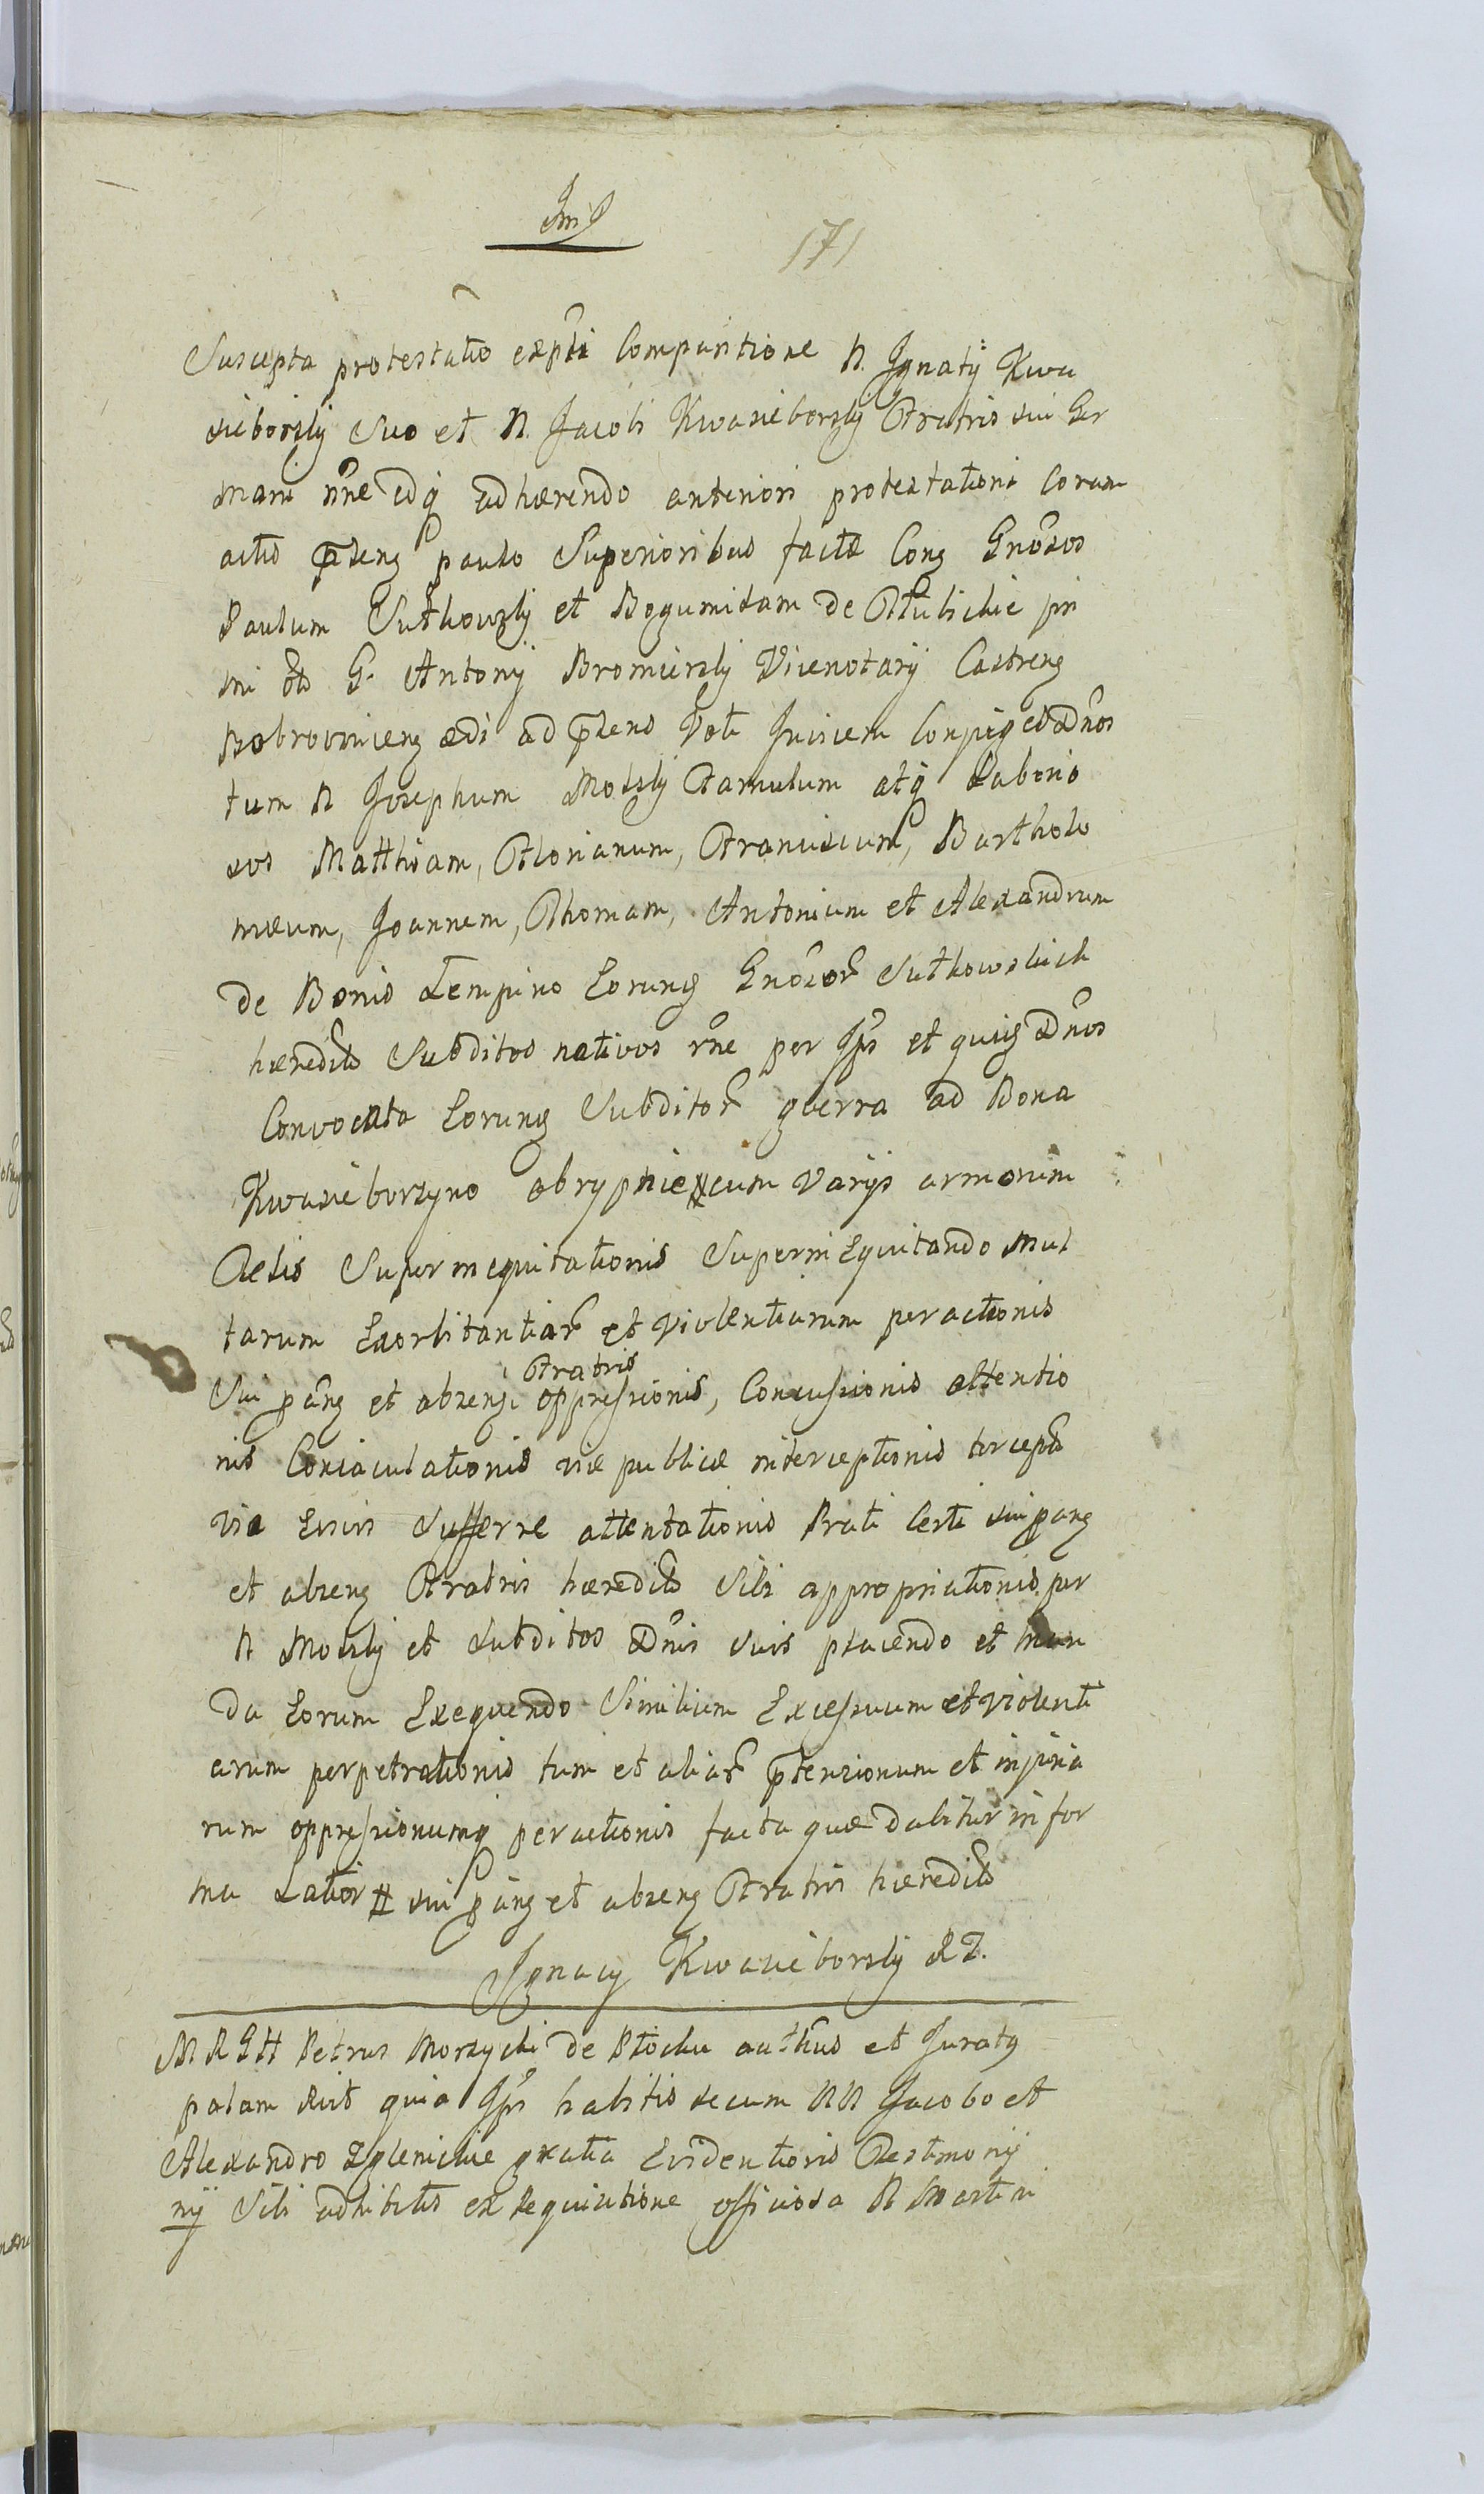 171
Suscepta protestatio expti Comparitione N. Ignatij Kwa
sieborski Suo et N. Jacobi Kwasieborskj Fratris sui Ger
mani nne edq adhærendo anteriori protestationi Coram
actis ptseng paulo Superioribus factæ Cong Gnosos
Paulum Sutkowskj et Bogumilam de
mi G. Antonij Bromirskj Vicenotarij Castreng
Bobrovnieng ad ptsens Invicem Conjuges Dnos
tum N Josephum Molskj Famulum atq Laborio
sos Matthiam, Florianum, Franciscum, Bartholo
mæum, Joannem, Thomam, Antonium et Alexandrum
de Bonis Lempino Eorung Gnosor Sutkowskich
hæredits Subditos nativos rne per Ips et quig Dnos
Convocata Eorung Subditor gverra ad Bona
Kwasieborzyno cum Varijs armorum
Telis Superinequitationis Superin Equitando mul
tarum Exorbitantiar et Violentiarum peractionis
Fratris
Sui pang et abseng oppressionis, Concussionis attentio
nis Conciaculationis viæ publicæ interceptionis
via attentationis Prati Certi sui pang
et abseng Fratris hæredits Sibi appropriationis per
N Molskj et Subditos Dnis suis placendo et man
da Eorum Exequendo Similium Excessuum et Violenti
arum perpetrationis tum et aliar ptensionum et injuria
rum oppressionumq peractionis facta quæ dabitur in for
ma Latior # sui pang et abseng Fratris hæredits
Ignacy Kwasieborskj
M R G H Petrus Morzycki de Plocku authus et Juratg
palam quia Ips habitis secum NN Jacobo et
Alexandro Zglenickie gratia Evidentioris Testimonij
nij Sibi adhibitis ex Requisitione officiosa N Martini